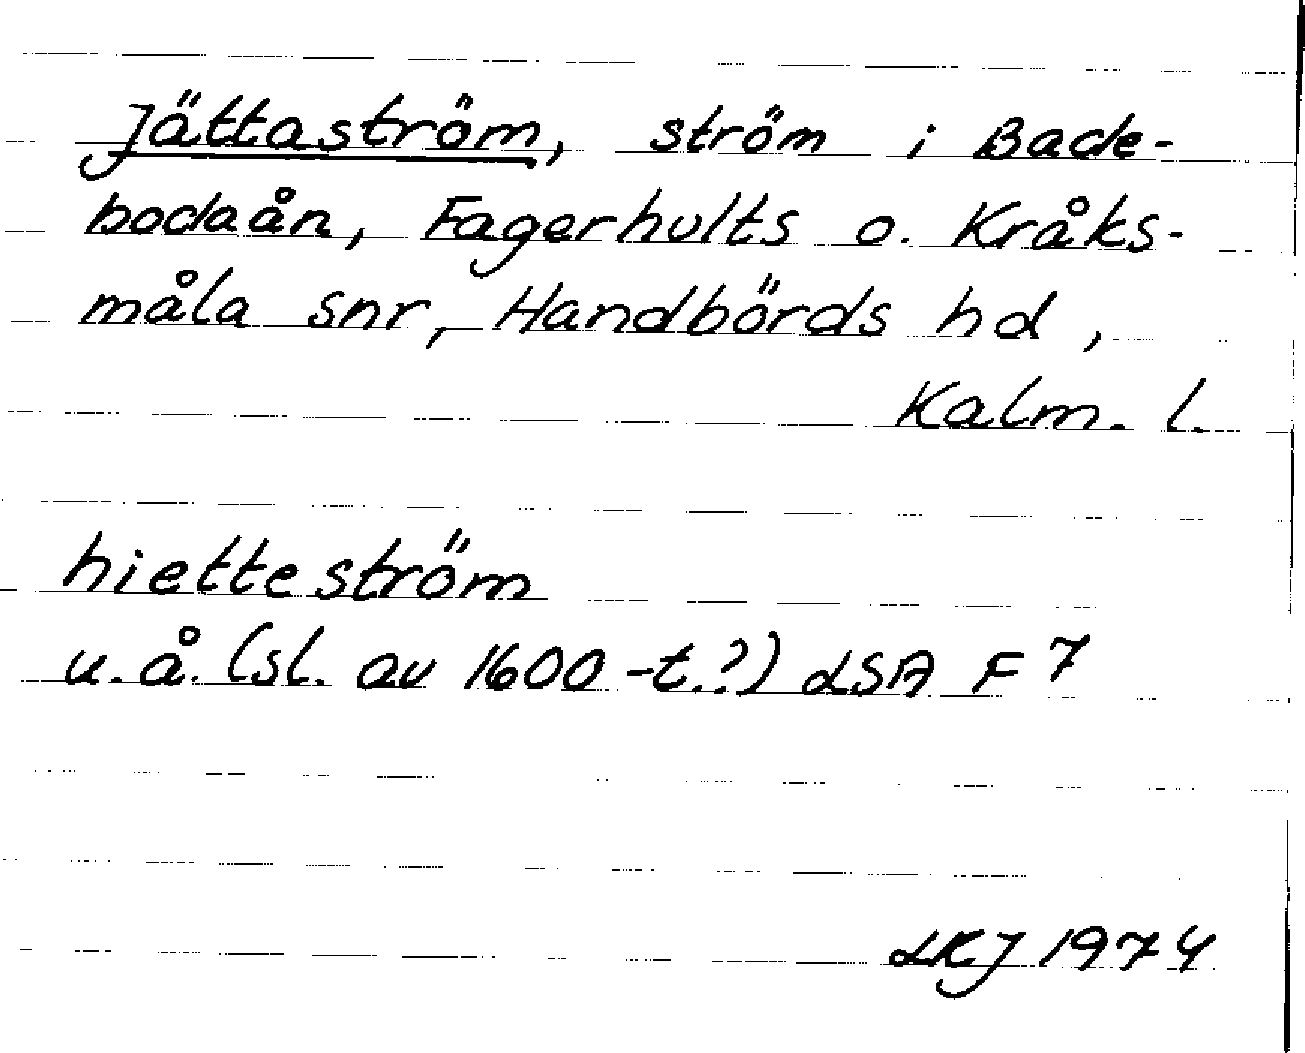 Jättaström, ström i Bade-
bodaån, Fagerhults o. Kråks-
måla snr, Handbörds hd,
Kalm. l.
hietteström
u.å. (sl. av 1600-t.?) LSA F 7
LKJ 1974